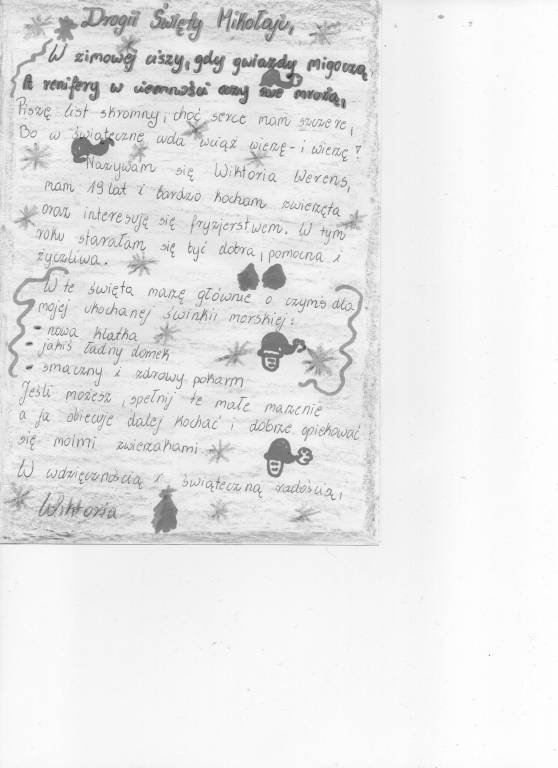 Drogii Święty Mikołaju,
W zimowej ciszy, gdy gwiazdy migoczą
A renifery w ciemności oczy swe mrożą,
Piszę list skromny, choć serce mam szczere,
Bo w świąteczne cuda wciąż wierzę - i wierzę?
Nazywam się Wiktoria Werens,
mam 19 lat i bardzo kocham zwierzęta
oraz interesuję się fryzjerstwem. W tym
roku starałam się być dobra, pomocna i
życzliwa.
W te święta marzę głównie o czymś dla
mojej ukochanej świnkii morskiej:
- nowa klatka
- jakiś ładny domek
- smaczny i zdrowy pokarm
Jeśli możesz, spełnij te małe marzenie
a ja obiecuję dalej kochać i dobrze opiekować
się moimi zwierzakami.
W wdzięcznością i świąteczną radością,
Wiktoria